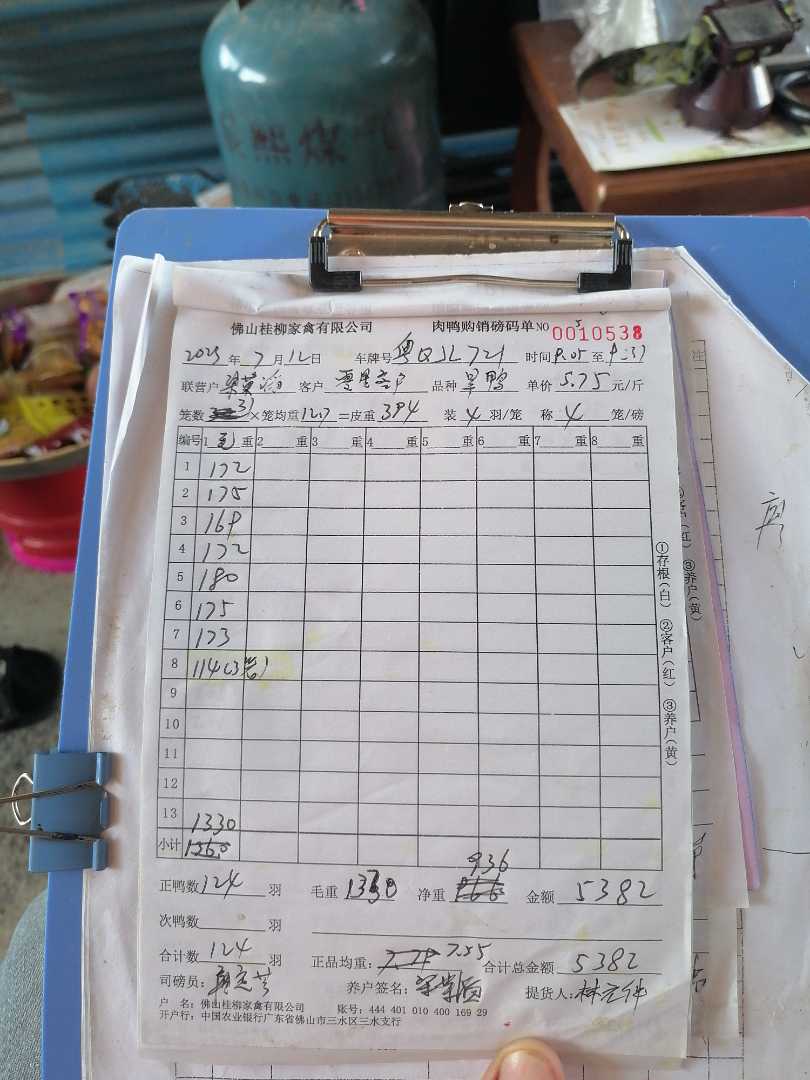 佛山桂柳家禽有限公司 肉鸭购销磅码单 NO 0010538
2025 年 7 月 12 日 车牌号 粤QJL721 时间 9.05 至 9:37
联营户 客户 零星客户 品种 旱鸭 单价 5.75 元/斤
笼数 31 ×笼均重 12.7 =皮重 394 装 4 羽/笼 称 4 笼/磅
编号 1 毛 重 2 重 3 重 4 重 5 重 6 重 7 重 8 重
1 172
2 175
3 169
4 172
5 180
6 175
7 173
8 114(3笼)
9
10
11
12
13 1330
小计
936
正鸭数 124 羽 毛重 1330 净重 金额 5382
次鸭数 羽
合计数 124 羽 正品均重: 7.55 合计总金额 5382
司磅员: 养户签名: 提货人:
户 名: 佛山桂柳家禽有限公司 账号: 444 401 010 400 169 29
开户行: 中国农业银行广东省佛山市三水区三水支行
①存根(白) ②客户(红) ③养户(黄)
(红) ③养户(黄)
注